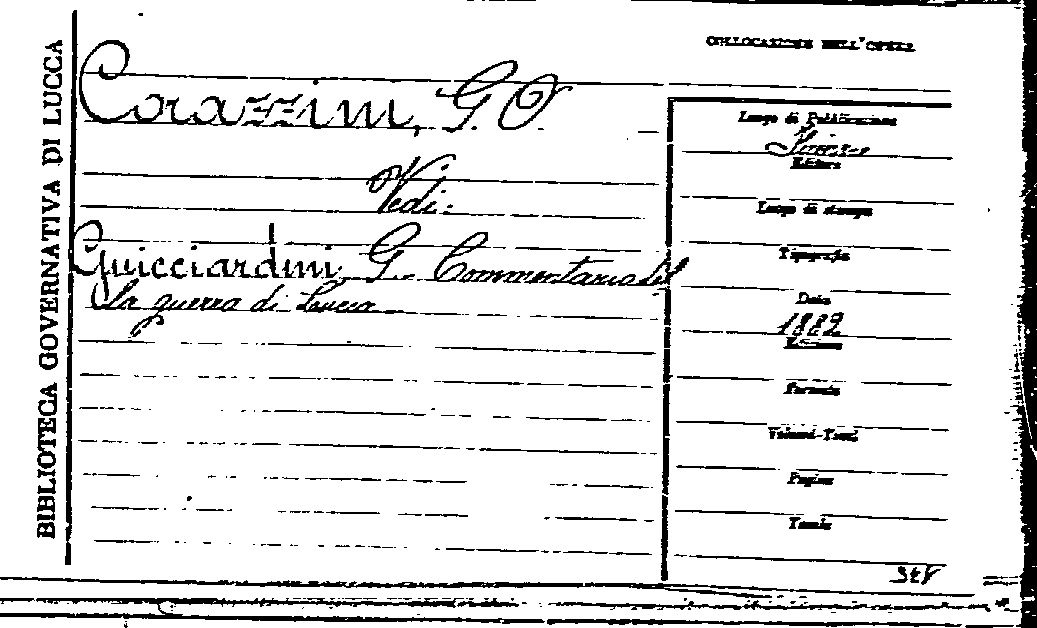 BIBLIOTECA GOVERNATIVA DI LUCCA
COLLOCAZIONE DELL'OPERA
Corazzini, G. O.
Vedi:
Guicciardini G. Commentario del
la guerra di Lucca
Luogo di Pubblicazione
Editore
Luogo di stampa
Tipografia
Data
1882
Edizione
Formato
Volumi-Tomi
Pagine
Tavole